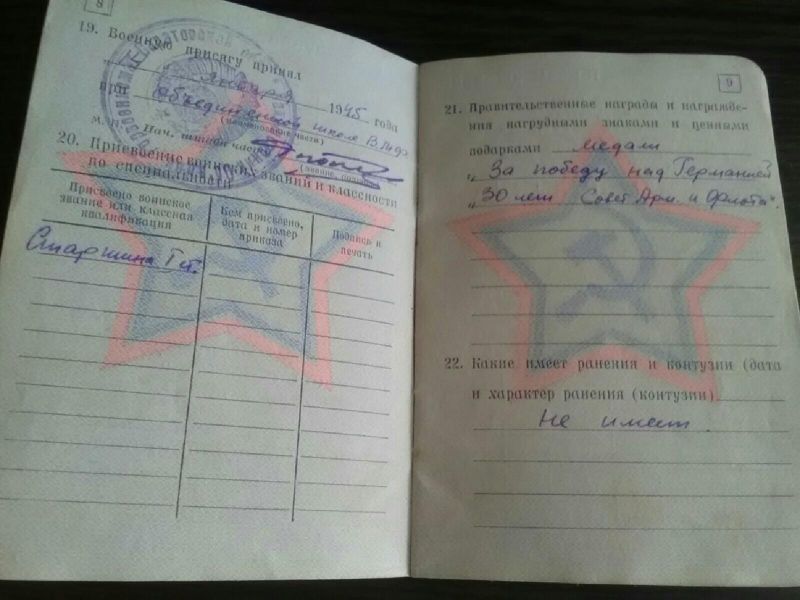 8
19. Военную присягу принял
" " января 1945 года
при Объединенной школе В.М.Ф.
(наименование части)
М. П. Нач. штаба части
(звание, подпись)
20. Присвоение воинских званий и классности
по специальности
Присвоено воинское звание или классная квалификация
Кем присвоено, дата и номер приказа
Подпись и печать
Старшина I ст.
9
21. Правительственные награды и награжде-
ния нагрудными знаками и ценными
подарками медали
„За победу над Германией
„30 лет Совет Арм. и Флота".
22. Какие имеет ранения и контузии (дата
и характер ранения (контузии)
Не имеет.